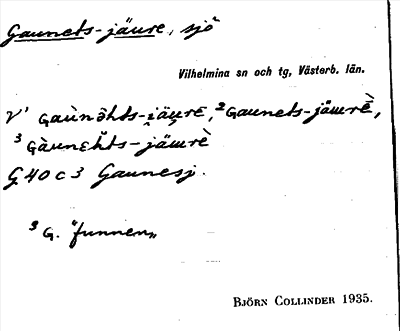 Gaunets-jäure, sjö
Vilhelmina sn och tg, Västerb. län.
V' Gaùnə̆hts-i̯äu̯rɛ, ²Gaunets-jäɯrè,
³Gàunɛ̆hts-jäɯrè
G 40 c 3 Gaunesj.
³ G. "funnen"
BJÖRN COLLINDER 1935.